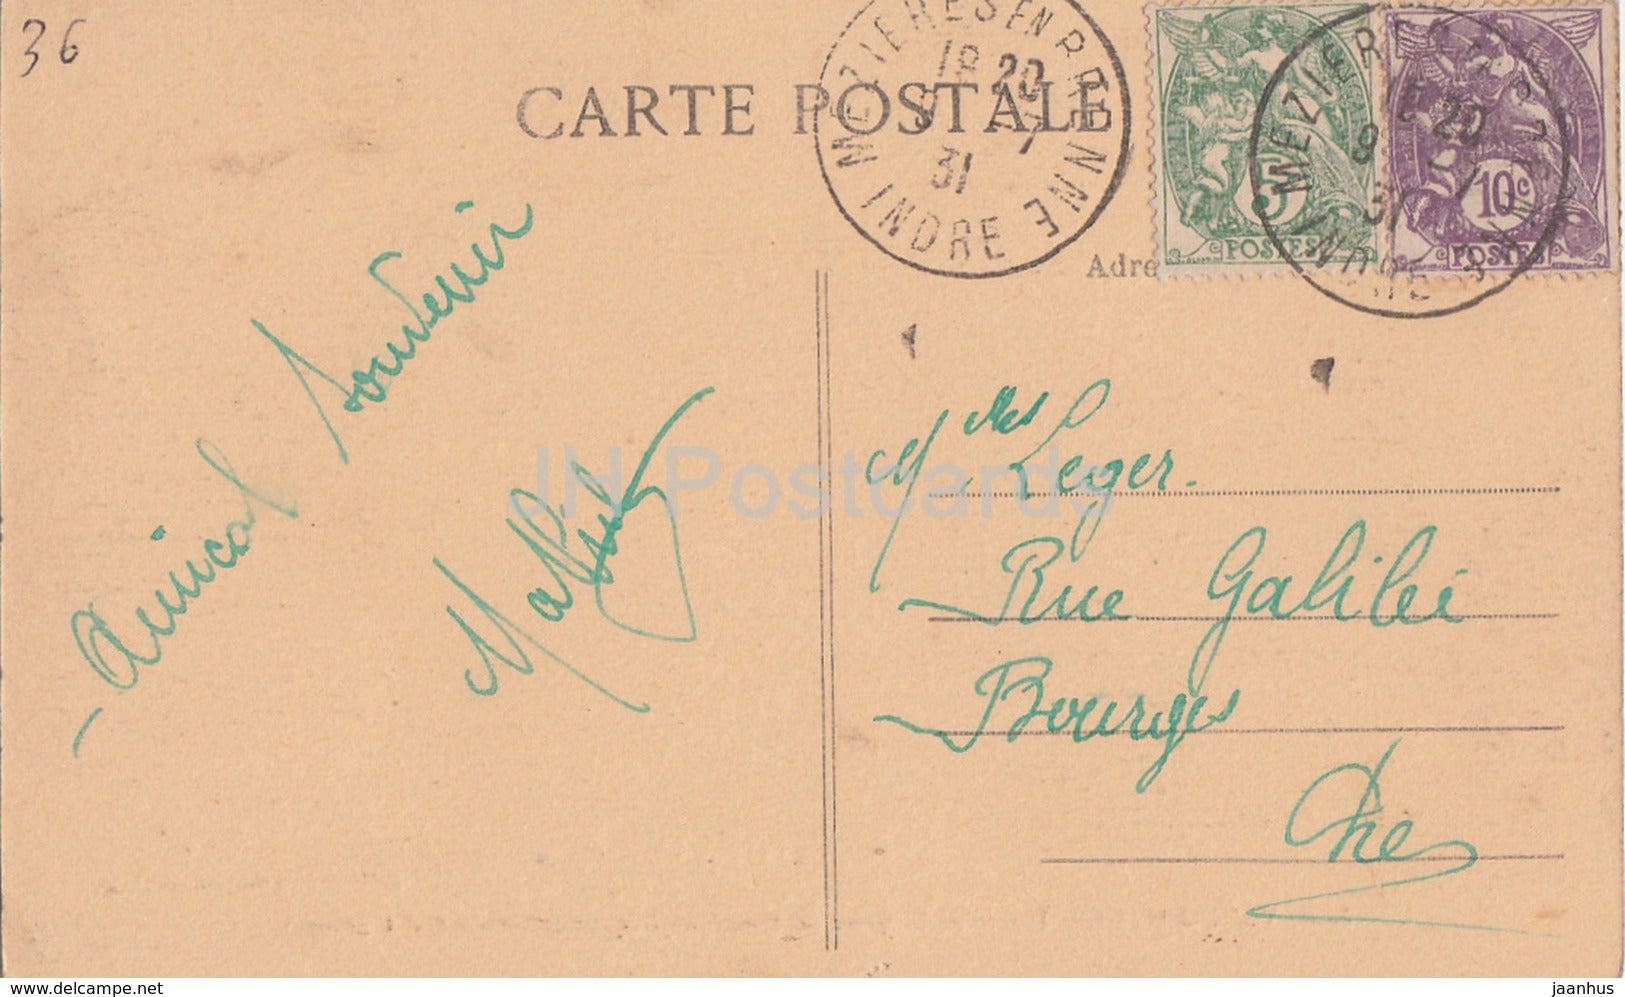 36
CARTE POSTALE
MEZIERES EN BRENNE
18 20
9 7
31
INDRE
5
POSTES
10c
POSTES
MEZIERES
20
9 7
31
INDRE
Adre
Amical souvenir
Mdes Leger.
Rue Galilée
Bourges
Cher
JH Postcards
www.delcampe.net
jaanhus